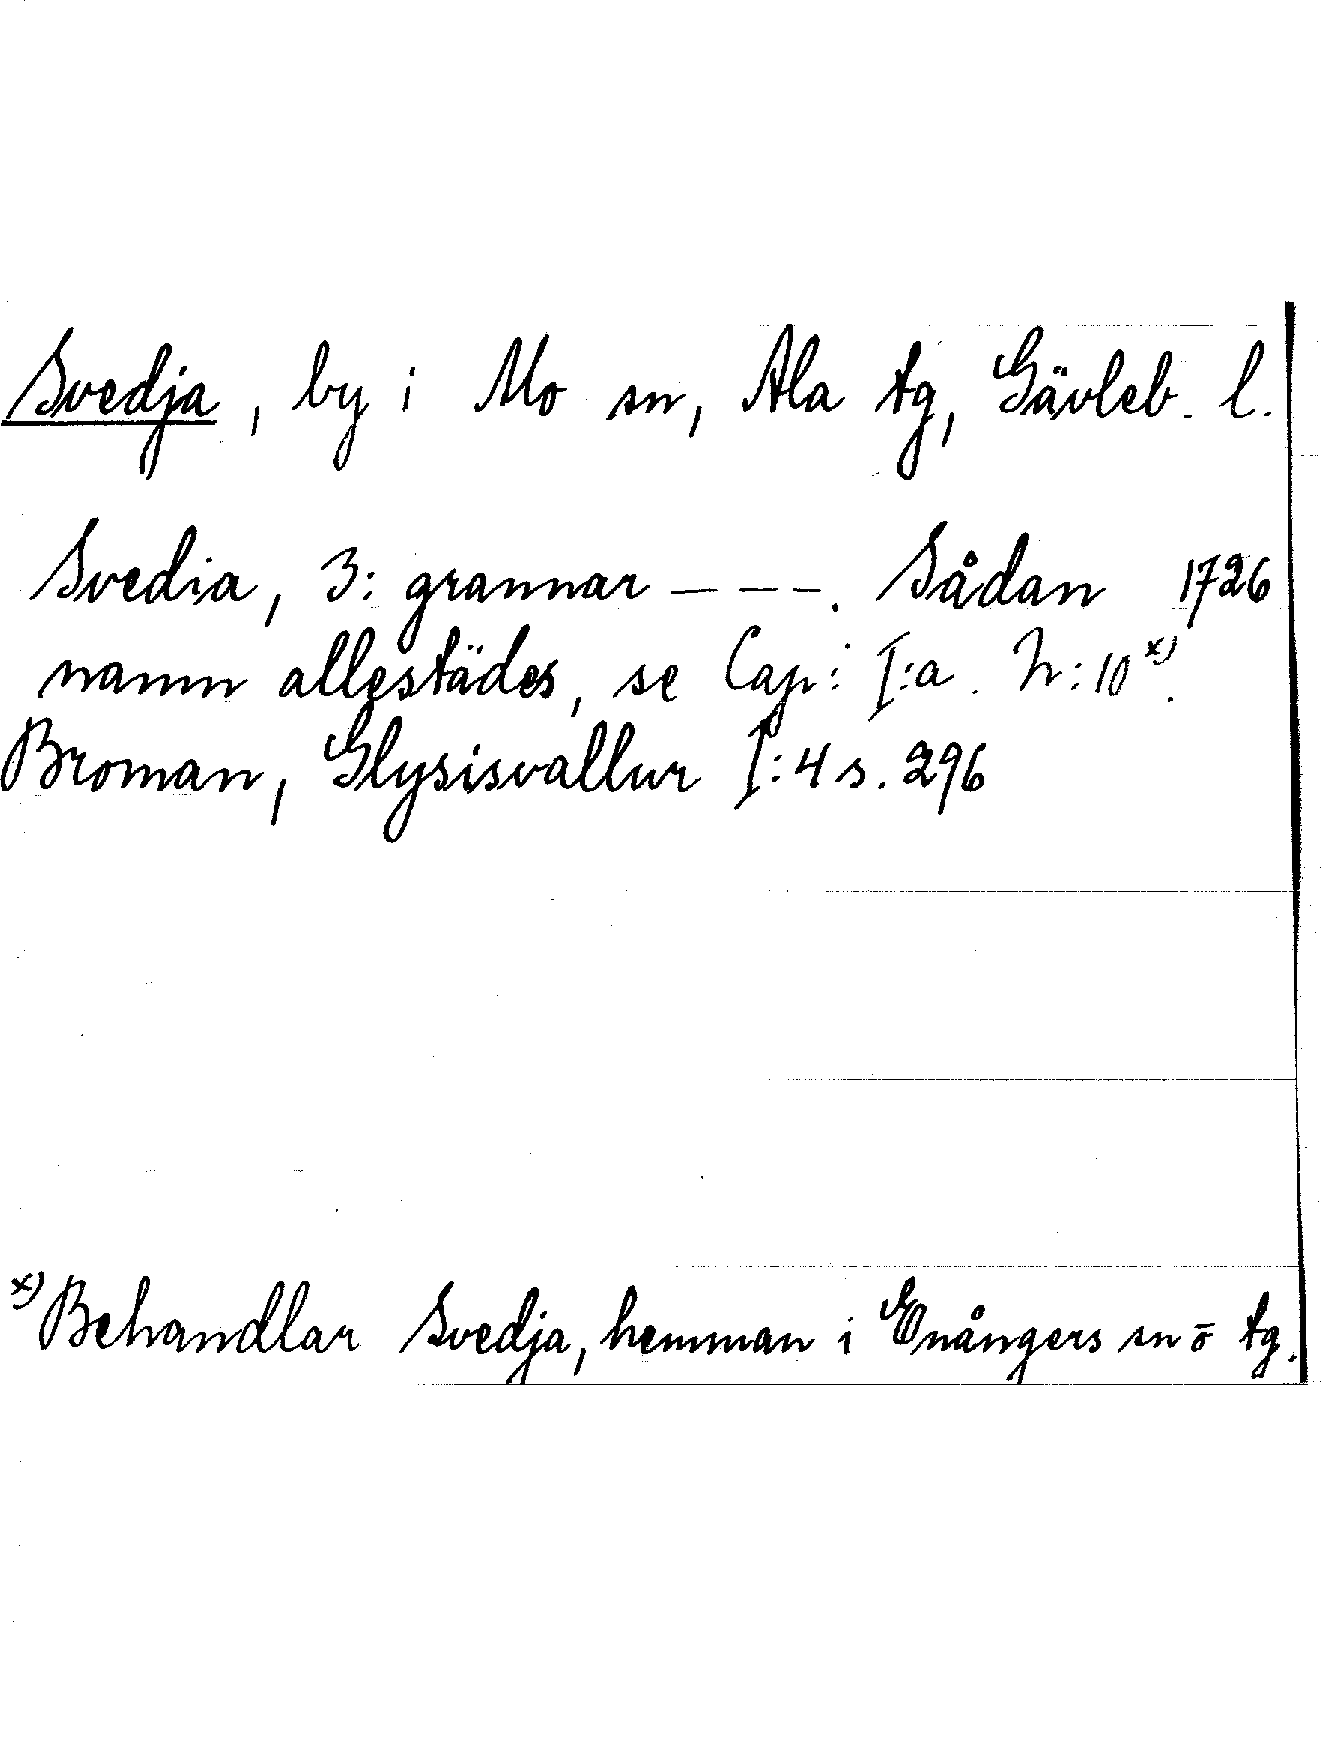 Svedja, by i Mo sn, Ala tg, Gävleb. l.
Svedia, 3: grannar – – –. Sådan 1726
namn allestädes, se Cap: I:a. N:10 x).
Broman, Glysisvallur I:4 s. 296
x) Behandlar Svedja, hemman i Enångers sn o tg.